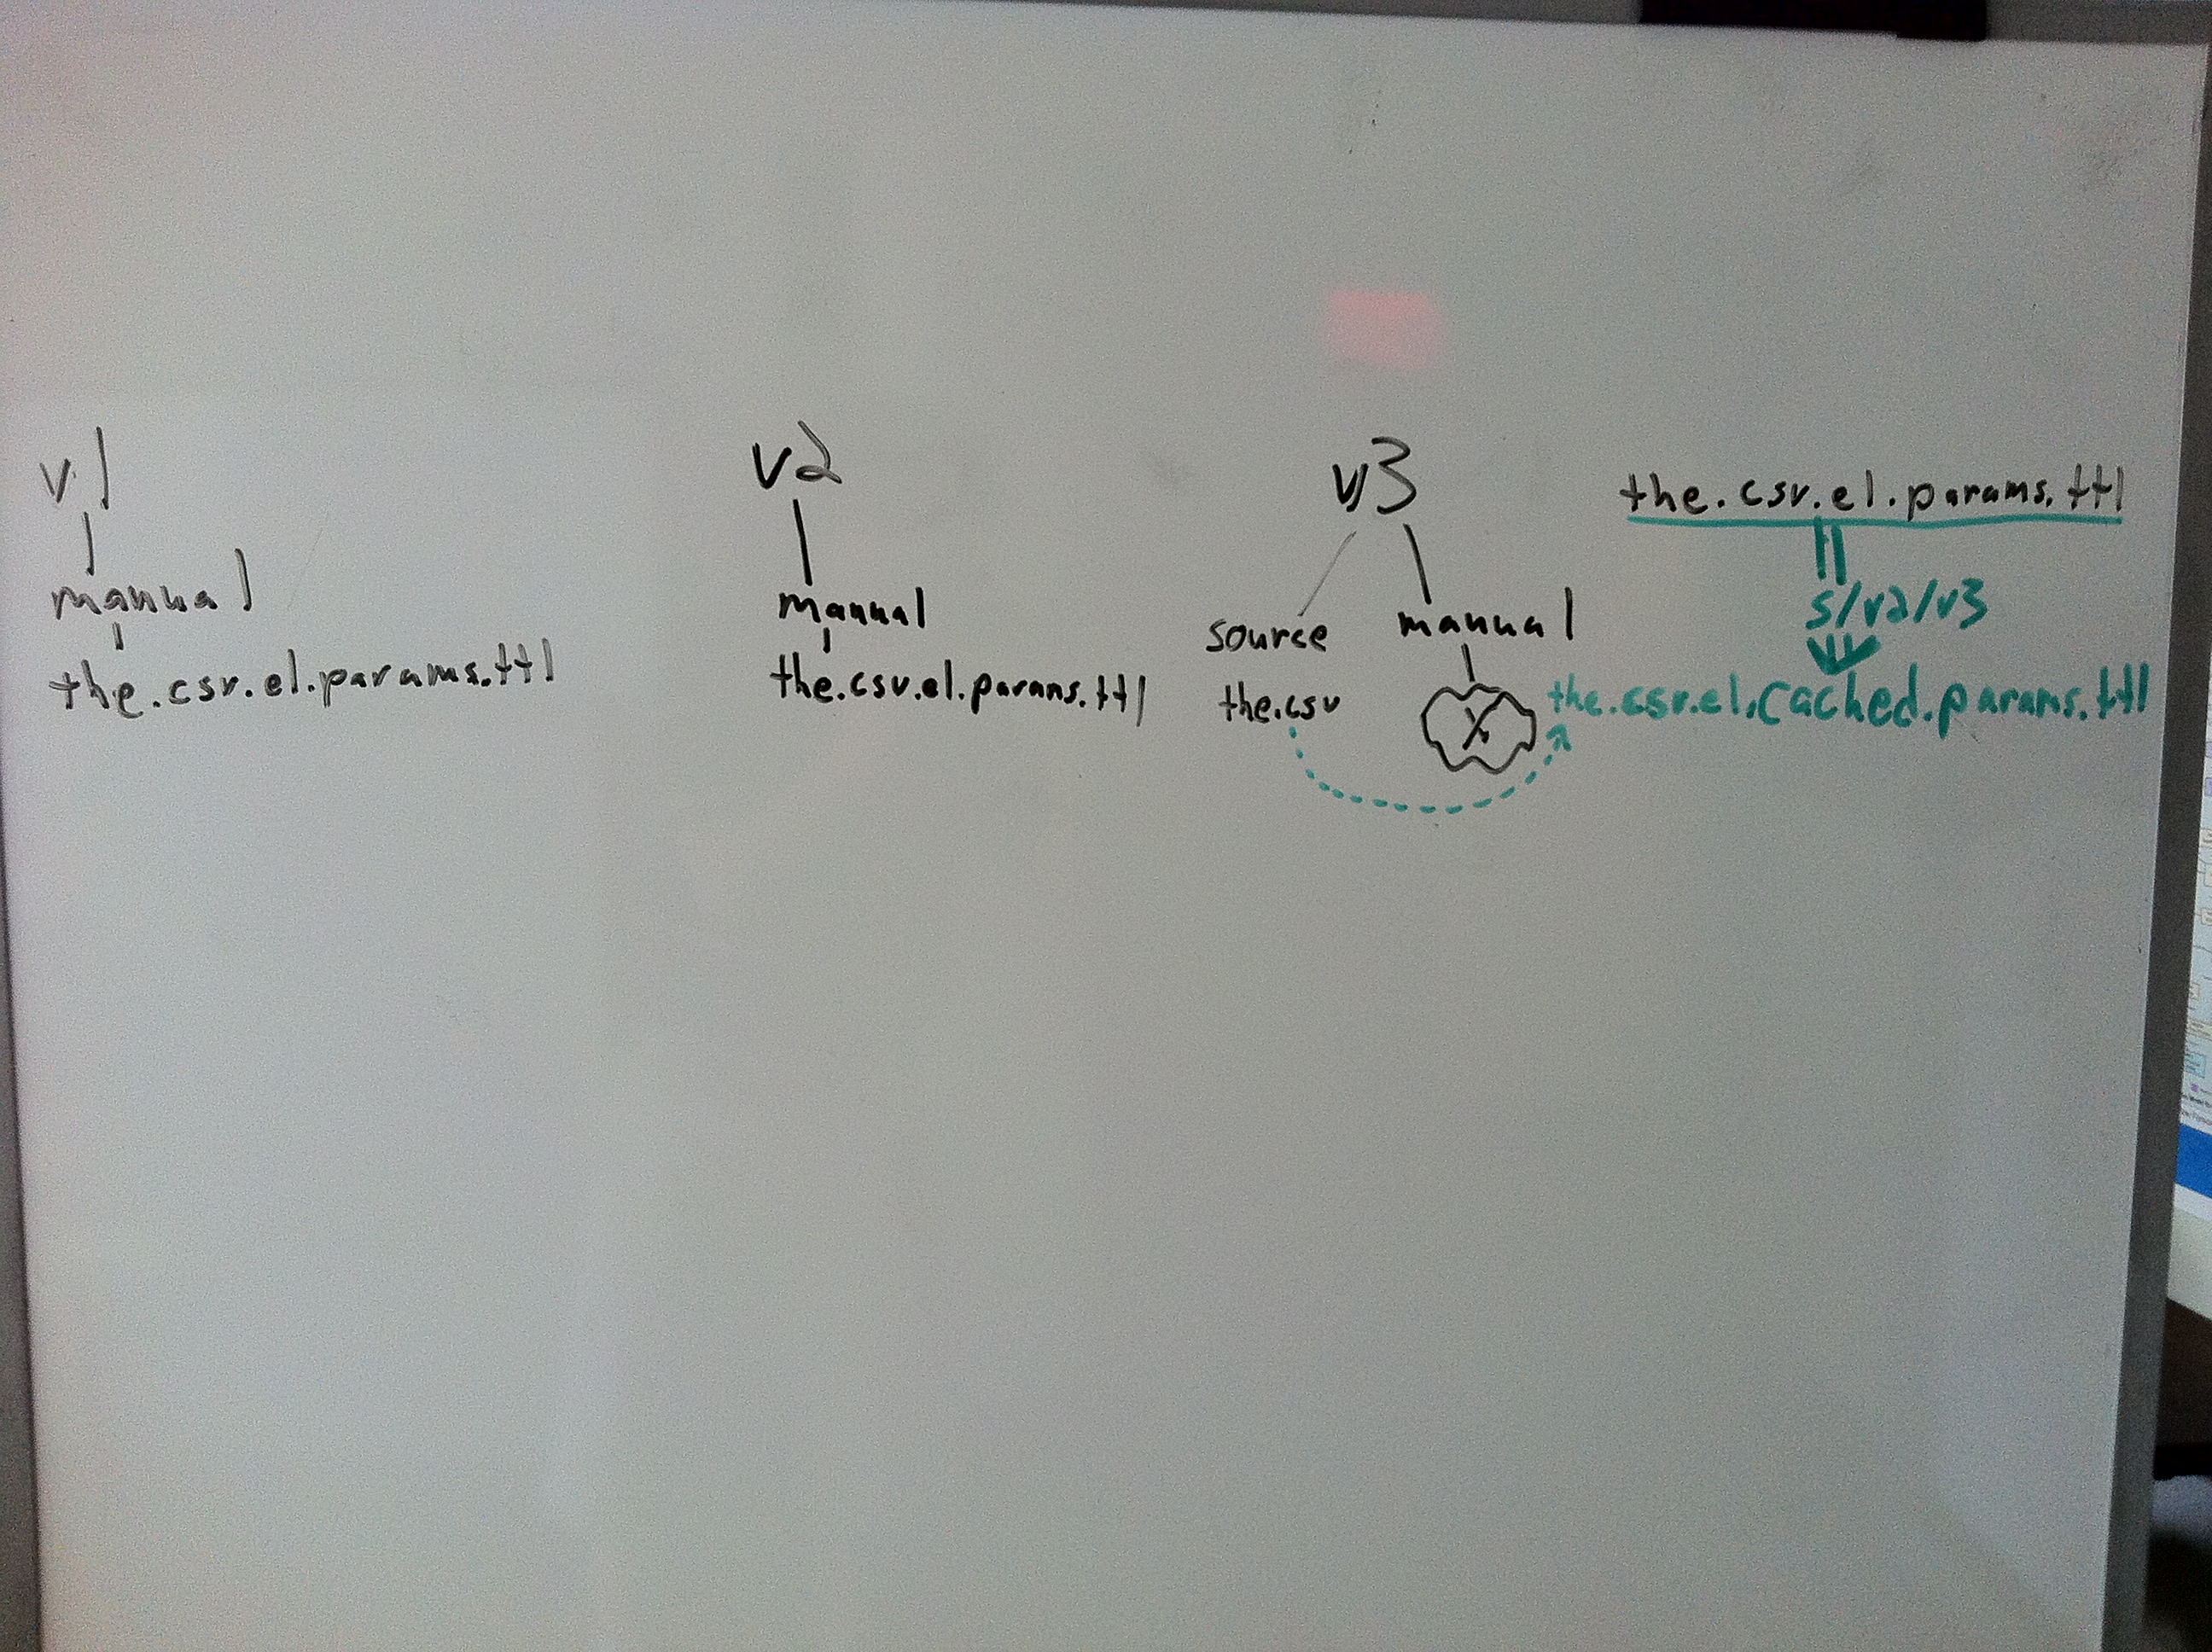 v1
manual
the.csv.el.params.ttl
v2
manual
the.csv.el.params.ttl
v3
source
the.csv
manual
the.csv.el.params.ttl
s/v2/v3
the.csv.el.cached.params.ttl